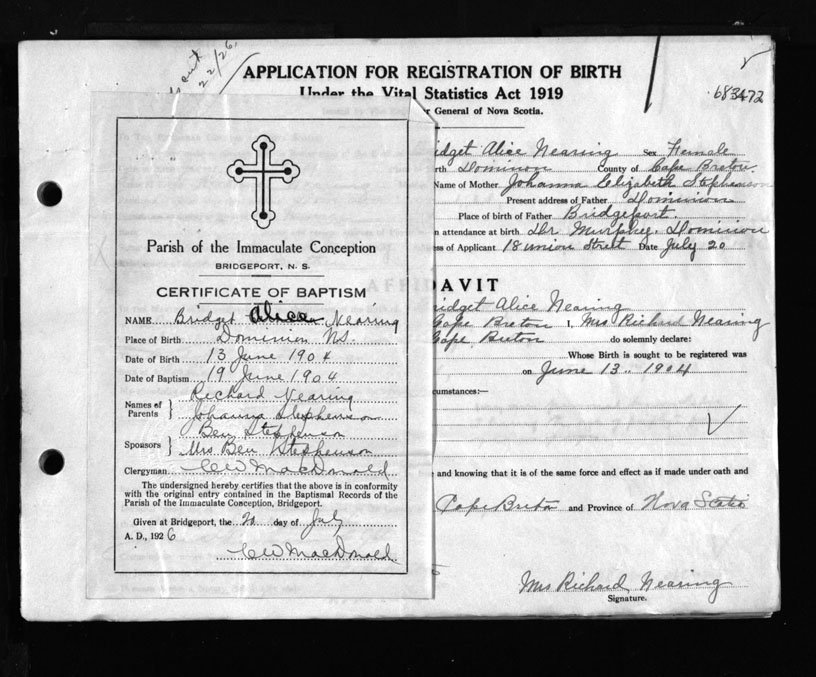 22/26
APPLICATION FOR REGISTRATION OF BIRTH
Under the Vital Statistics Act 1919
General of Nova Scotia.
683472
Parish of the Immaculate Conception
BRIDGEPORT, N. S.
CERTIFICATE OF BAPTISM
NAME Bridget Alice Nearing
Place of Birth Dominion N.S.
Date of Birth 13 June 1904
Date of Baptism 19 June 1904
Names of Parents } Richard Nearing
Johanna Stephenson
Sponsors } Ben Stephenson
Mrs Ben Stephenson
Clergyman C W MacDonald
The undersigned hereby certifies that the above is in conformity
with the original entry contained in the Baptismal Records of the
Parish of the Immaculate Conception, Bridgeport.
Given at Bridgeport, the 20 day of July
A. D., 1926
C W MacDonald
idget Alice Nearing Sex Female
rth Dominion County of Cape Breton
Name of Mother Johanna Elizabeth Stephenson
Present address of Father Dominion
Place of birth of Father Bridgeport.
n attendance at birth Dr Murphy, Dominion
ess of Applicant 18 Union Street Date July 20
AFFIDAVIT
ridget Alice Nearing
Cape Breton I, Mrs Richard Nearing
Cape Breton do solemnly declare:
Whose Birth is sought to be registered was
on June 13, 1904
cumstances:—
e and knowing that it is of the same force and effect as if made under oath and
Cape Breton and Province of Nova Scotia
Mrs Richard Nearing
Signature.